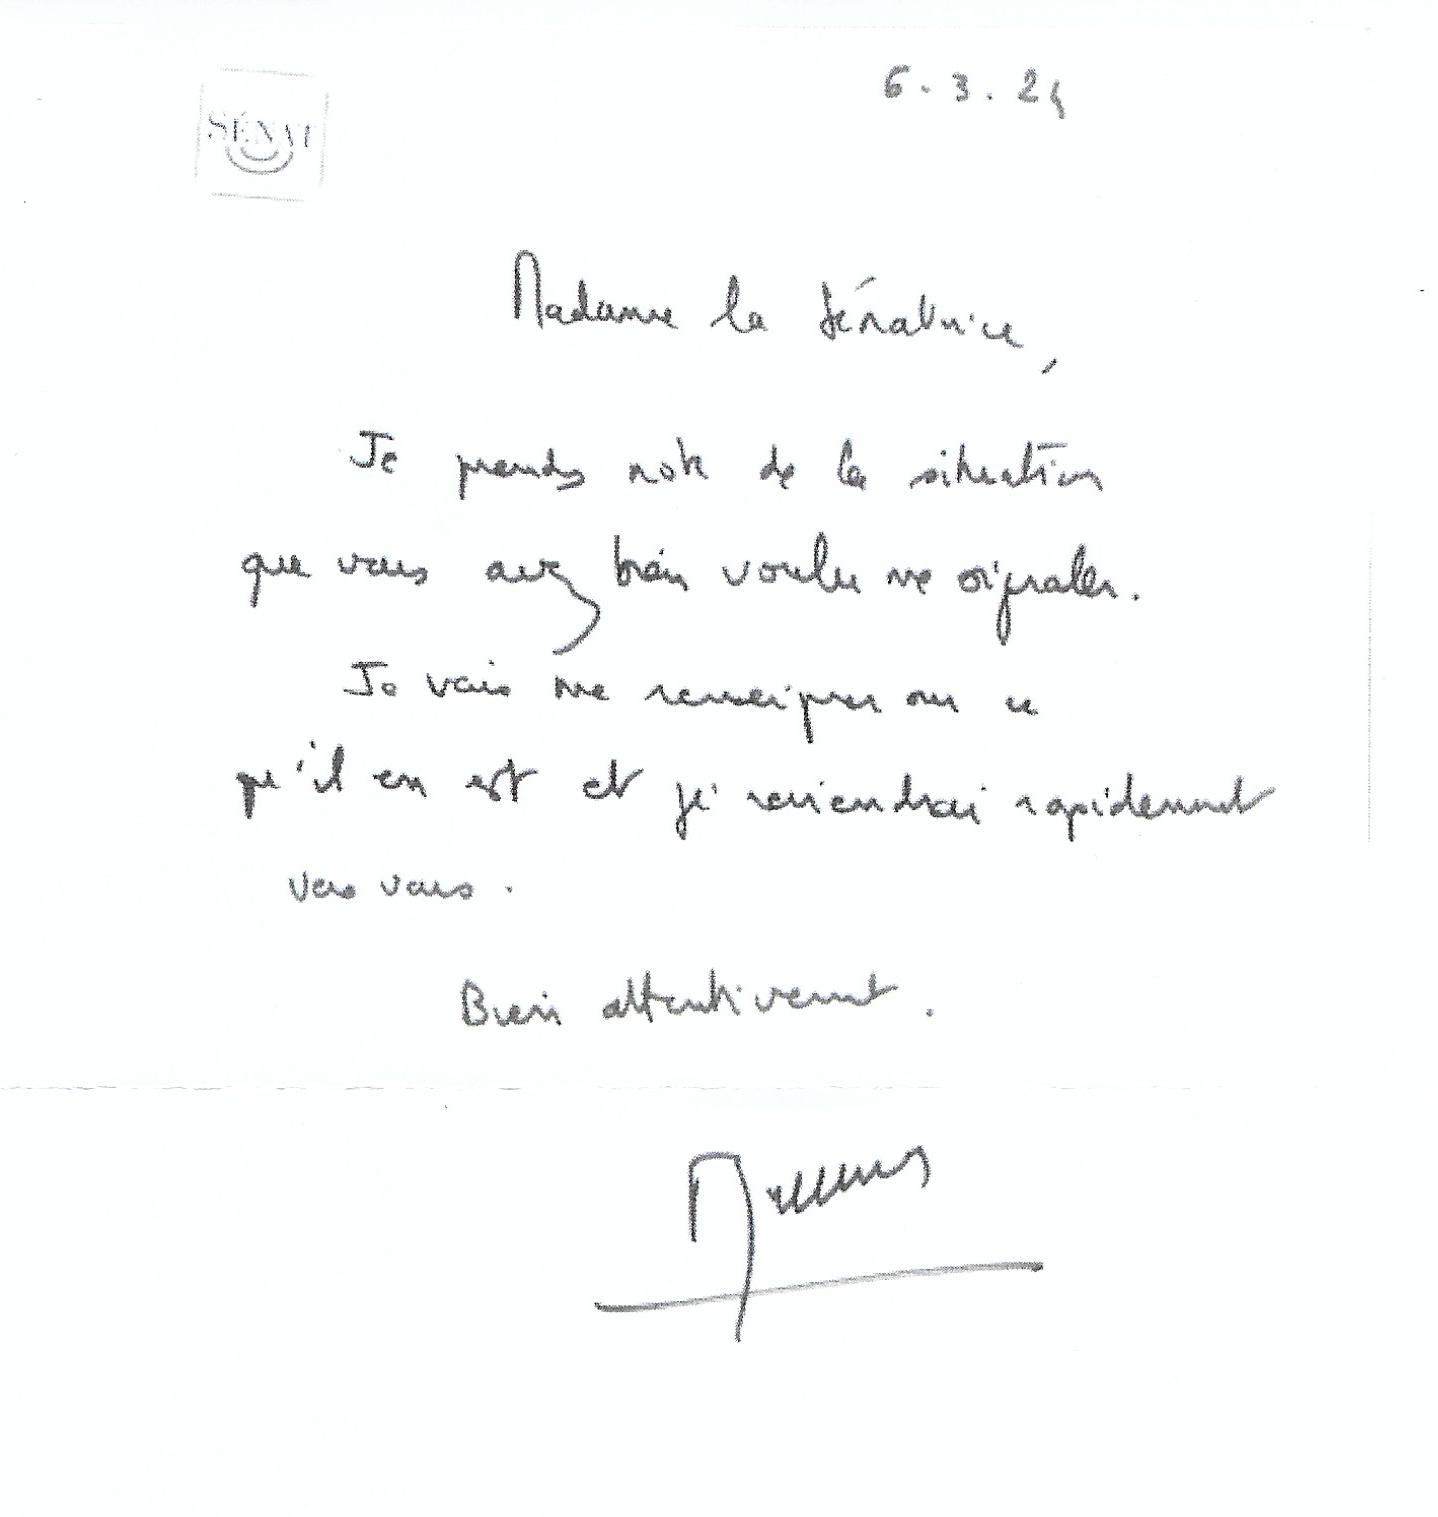 6.3.24
SÉNAT
Madame la Sénatrice,
Je prends note de la situation
que vous avez bien voulu me signaler.
Je vais me renseigner sur ce
qu'il en est et je reviendrai rapidement
vers vous.
Bien attentivement.